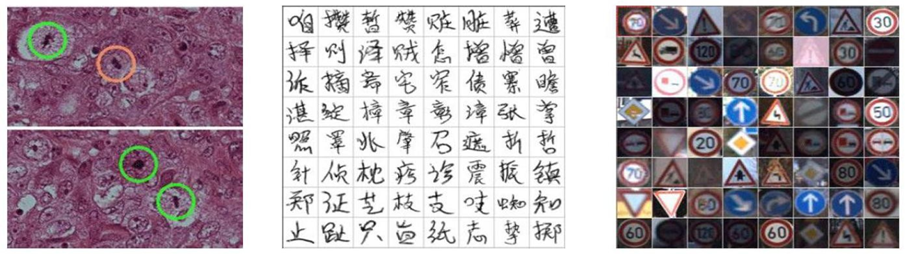 咱 攒 暂 赞 赃 脏 葬 遭
择 则 泽 贼 怎 增 憎 曾
诈 摘 斋 宅 窄 债 寨 瞻
湛 绽 樟 章 彰 漳 张 掌
照 罩 兆 肇 召 遮 折 哲
针 侦 枕 疹 诊 震 振 镇
郑 证 芝 枝 支 吱 蜘 知
止 趾 只 旨 纸 志 挚 掷
70 70 30
120 60
70 70 60
50
20
70
80
60 60 60